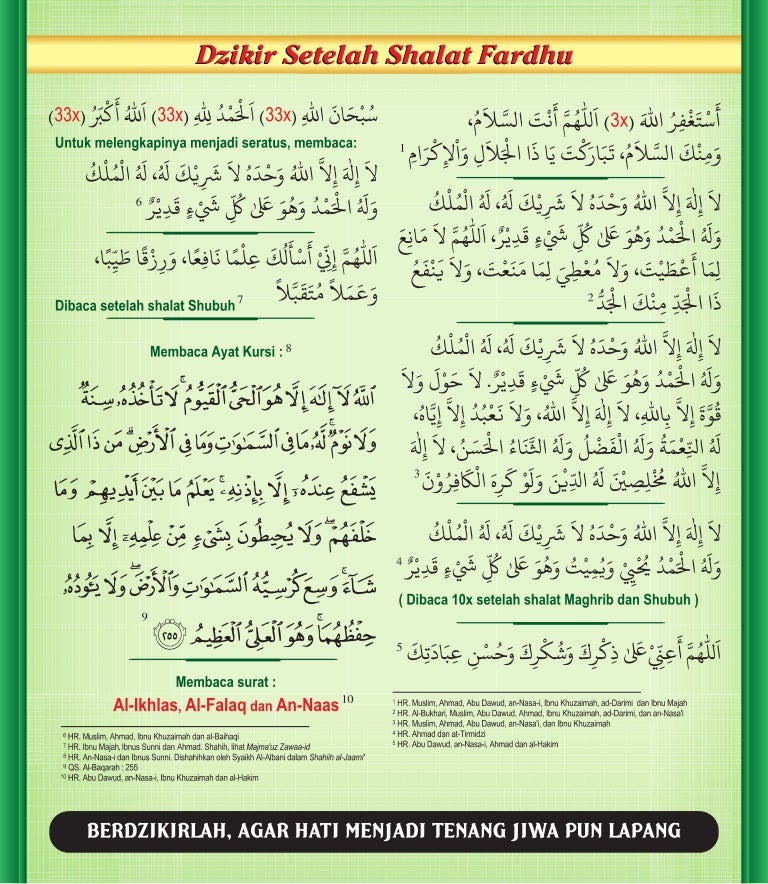 Dzikir Setelah Shalat Fardhu
أَسْتَغْفِرُ اللهَ (3x) اَللَّهُمَّ أَنْتَ السَّلاَمُ،
وَمِنْكَ السَّلاَمُ، تَبَارَكْتَ يَا ذَا الْجَلاَلِ وَاْلإِكْرَامِ 1
لاَ إِلٰهَ إِلاَّ اللهُ وَحْدَهُ لاَ شَرِيْكَ لَهُ، لَهُ الْمُلْكُ
وَلَهُ الْحَمْدُ وَهُوَ عَلىٰ كُلِّ شَيْءٍ قَدِيْرٌ، اَللَّهُمَّ لاَ مَانِعَ
لِمَا أَعْطَيْتَ، وَلاَ مُعْطِيَ لِمَا مَنَعْتَ، وَلاَ يَنْفَعُ
ذَا الْجَدِّ مِنْكَ الْجَدُّ 2
لاَ إِلٰهَ إِلاَّ اللهُ وَحْدَهُ لاَ شَرِيْكَ لَهُ، لَهُ الْمُلْكُ
وَلَهُ الْحَمْدُ وَهُوَ عَلىٰ كُلِّ شَيْءٍ قَدِيْرٌ. لاَ حَوْلَ وَلاَ
قُوَّةَ إِلاَّ بِاللهِ، لاَ إِلٰهَ إِلاَّ اللهُ، وَلاَ نَعْبُدُ إِلاَّ إِيَّاهُ،
لَهُ النِّعْمَةُ وَلَهُ الْفَضْلُ وَلَهُ الثَّنَاءُ الْحَسَنُ، لاَ إِلٰهَ
إِلاَّ اللهُ مُخْلِصِيْنَ لَهُ الدِّيْنَ وَلَوْ كَرِهَ الْكَافِرُوْنَ 3
لاَ إِلٰهَ إِلاَّ اللهُ وَحْدَهُ لاَ شَرِيْكَ لَهُ، لَهُ الْمُلْكُ
وَلَهُ الْحَمْدُ يُحْيِيْ وَيُمِيْتُ وَهُوَ عَلىٰ كُلِّ شَيْءٍ قَدِيْرٌ 4
( Dibaca 10x setelah shalat Maghrib dan Shubuh )
اَللَّهُمَّ أَعِنِّيْ عَلىٰ ذِكْرِكَ وَشُكْرِكَ وَحُسْنِ عِبَادَتِكَ 5
1 HR. Muslim, Ahmad, Abu Dawud, an-Nasa-i, Ibnu Khuzaimah, ad-Darimi dan Ibnu Majah
2 HR. Al-Bukhari, Muslim, Abu Dawud, Ahmad, Ibnu Khuzaimah, ad-Darimi, dan an-Nasa'i
3 HR. Muslim, Ahmad, Abu Dawud, an-Nasa'i, dan Ibnu Khuzaimah
4 HR. Ahmad dan at-Tirmidzi
5 HR. Abu Dawud, an-Nasa-i, Ahmad dan al-Hakim
سُبْحَانَ اللهِ (33x) اَلْحَمْدُ لِلهِ (33x) اَللهُ أَكْبَرُ (33x)
Untuk melengkapinya menjadi seratus, membaca:
لاَ إِلٰهَ إِلاَّ اللهُ وَحْدَهُ لاَ شَرِيْكَ لَهُ، لَهُ الْمُلْكُ
وَلَهُ الْحَمْدُ وَهُوَ عَلىٰ كُلِّ شَيْءٍ قَدِيْرٌ 6
اَللَّهُمَّ إِنِّيْ أَسْأَلُكَ عِلْمًا نَافِعًا، وَرِزْقًا طَيِّبًا،
وَعَمَلاً مُتَقَبَّلاً
Dibaca setelah shalat Shubuh 7
Membaca Ayat Kursi : 8
ٱللَّهُ لَآ إِلَٰهَ إِلَّا هُوَ ٱلْحَىُّ ٱلْقَيُّومُ ۚ لَا تَأْخُذُهُۥ سِنَةٌ
وَلَا نَوْمٌ ۚ لَّهُۥ مَا فِى ٱلسَّمَٰوَٰتِ وَمَا فِى ٱلْأَرْضِ ۗ مَن ذَا ٱلَّذِى
يَشْفَعُ عِندَهُۥٓ إِلَّا بِإِذْنِهِۦ ۚ يَعْلَمُ مَا بَيْنَ أَيْدِيهِمْ وَمَا
خَلْفَهُمْ ۖ وَلَا يُحِيطُونَ بِشَىْءٍ مِّنْ عِلْمِهِۦٓ إِلَّا بِمَا
شَآءَ ۚ وَسِعَ كُرْسِيُّهُ ٱلسَّمَٰوَٰتِ وَٱلْأَرْضَ ۖ وَلَا يَـُٔودُهُۥ
حِفْظُهُمَا ۚ وَهُوَ ٱلْعَلِىُّ ٱلْعَظِيمُ ۝٢٥٥ 9
Membaca surat :
Al-Ikhlas, Al-Falaq dan An-Naas 10
6 HR. Muslim, Ahmad, Ibnu Khuzaimah dan al-Baihaqi
7 HR. Ibnu Majah, Ibnus Sunni dan Ahmad. Shahih, lihat Majma'uz Zawaa-id
8 HR. An-Nasa-i dan Ibnus Sunni. Dishahihkan oleh Syaikh Al-Albani dalam Shahiih al-Jaami'
9 QS. Al-Baqarah : 255
10 HR. Abu Dawud, an-Nasa-i, Ibnu Khuzaimah dan al-Hakim
BERDZIKIRLAH, AGAR HATI MENJADI TENANG JIWA PUN LAPANG